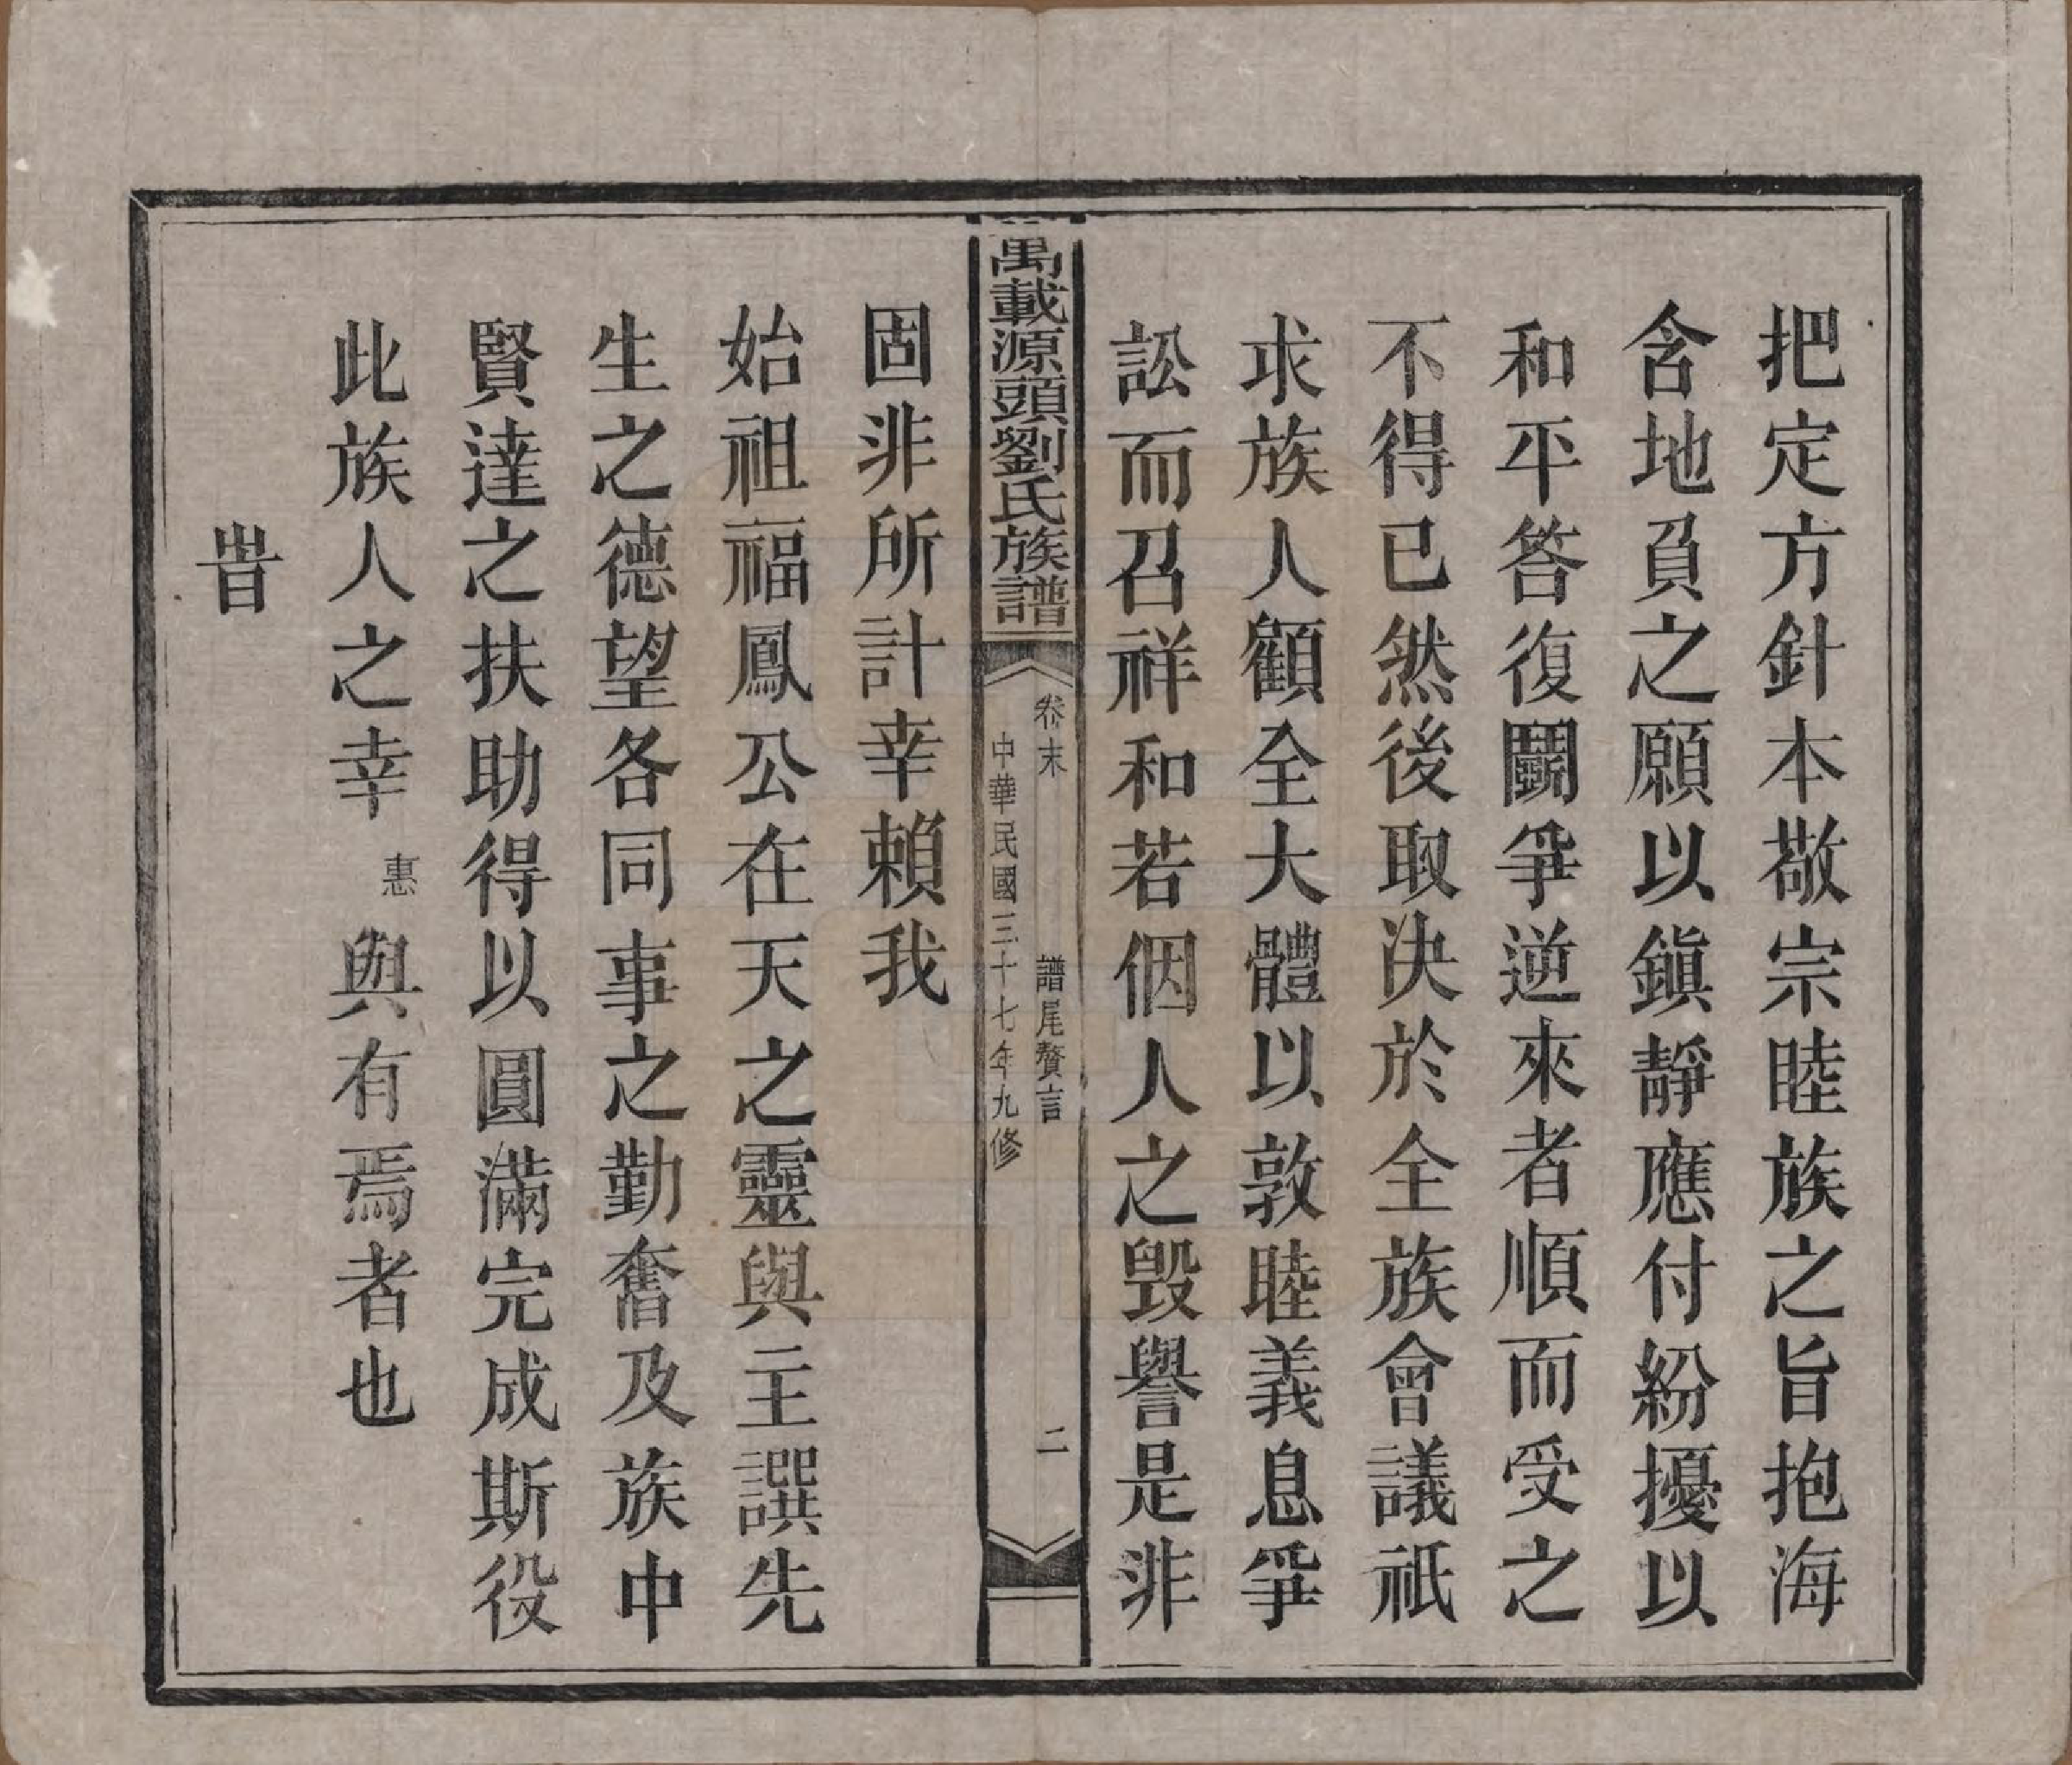 把定方針本敬宗睦族之旨抱海
含地負之願以鎭靜應付紛擾以
和平答復鬭爭逆來者順而受之
不得已然後取決於全族會議祇
求族人顧全大體以敦睦義息爭
訟而召祥和若個人之毀譽是非
萬載源頭劉氏族譜
卷末 譜尾贅言 二
中華民國三十七年九修
固非所計幸賴我
始祖福鳳公在天之靈與主譔先
生之德望各同事之勤奮及族中
賢達之扶助得以圓滿完成斯役
此族人之幸惠與有焉者也
旹